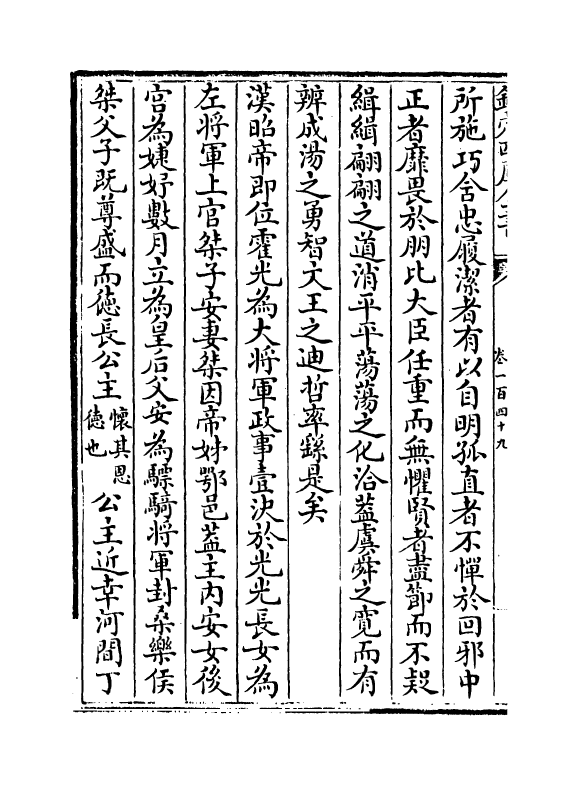 欽定四庫全書
卷一百四十九
所施巧舍忠履潔者有以自明孤直者不憚於回邪中
正者靡畏於朋比大臣任重而無懼賢者盡節而不疑
緝緝翩翩之道消平平蕩蕩之化洽蓋虞舜之寛而有
辨成湯之勇智文王之迪哲率繇是矣
漢昭帝即位霍光為大將軍政事壹決於光光長女為
左將軍上官桀子安妻桀因帝姊鄂邑蓋主内安女後
宫為婕妤數月立為皇后父安為驃騎將軍封桑樂侯
桀父子既尊盛而徳長公主懷其恩徳也公主近幸河間丁